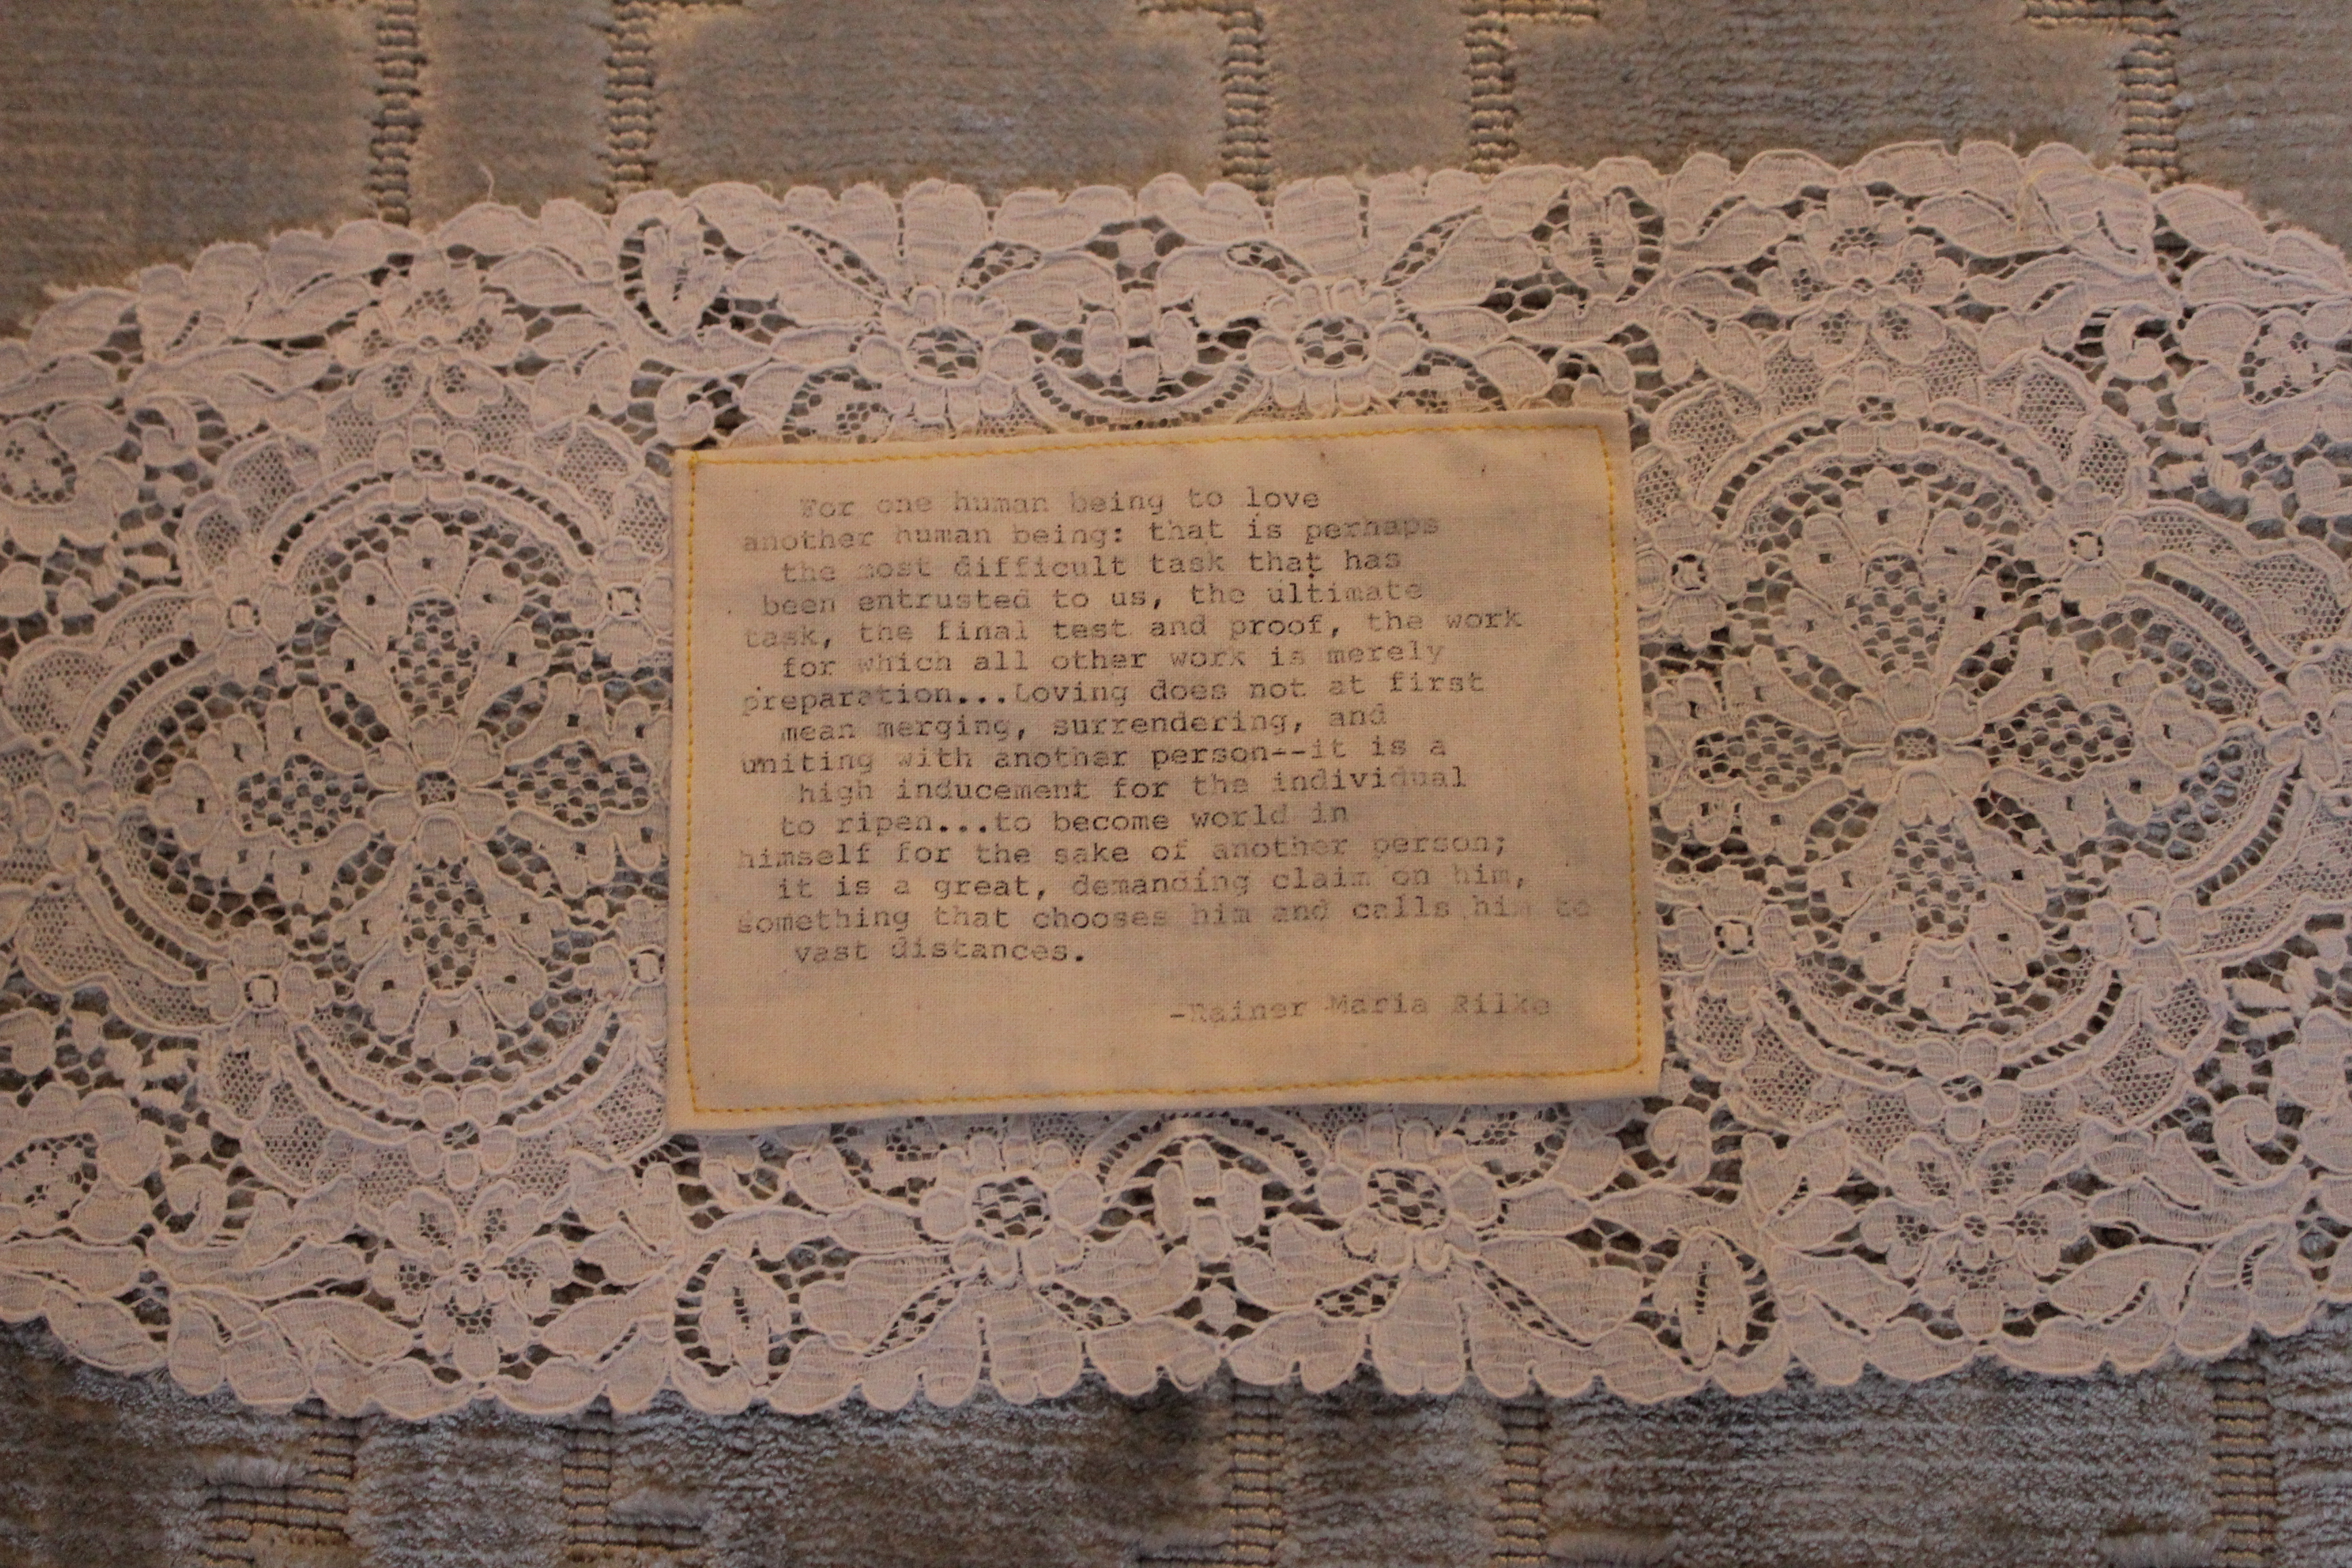 For one human being to love
another human being: that is perhaps
the most difficult task that has
been entrusted to us, the ultimate
task, the final test and proof, the work
for which all other work is merely
preparation...Loving does not at first
mean merging, surrendering, and
uniting with another person--it is a
high inducement for the individual
to ripen...to become world in
himself for the sake of another person;
it is a great, demanding claim on him,
something that chooses him and calls him to
vast distances.
-Rainer Maria Rilke